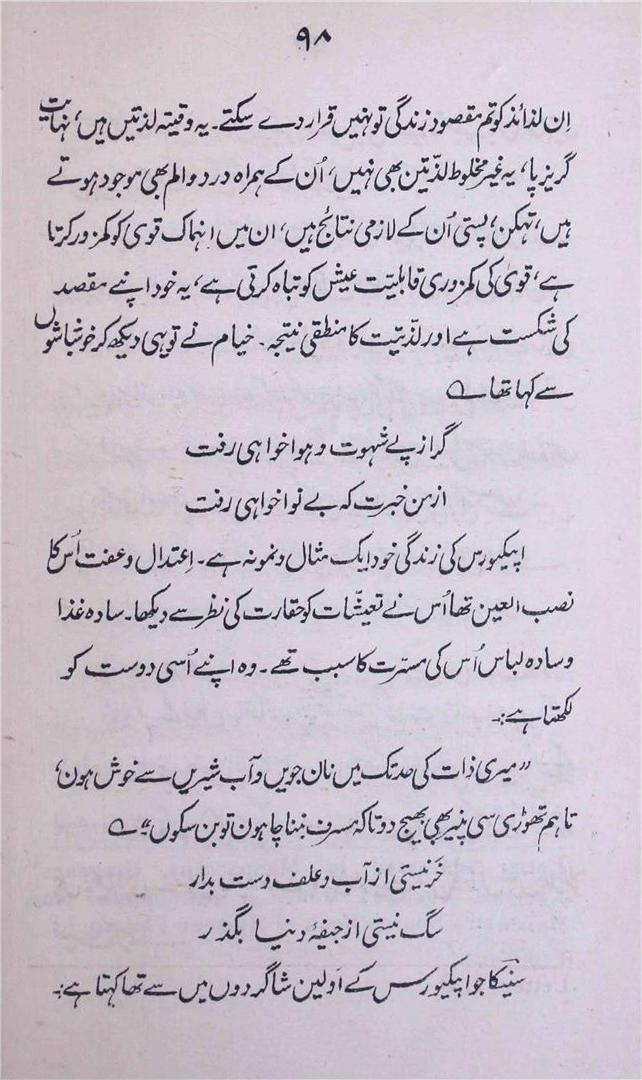 ۹۸
اِن لذائذ کو تم مقصود زندگی تو نہیں قرار دے سکتے۔ یہ وقیتہ لذتیں ہیں، نہایت
گریز پا، یہ غیر مخلوط لذّتین بھی نہیں، اُن کے ہمراہ درد و الم بھی موجود ہوتے
ہیں، تہکن، پستی اُن کے لازمی نتائج ہیں، ان میں انہماک قویٰ کو کمزور کرتا
ہے، قویٰ کی کمزوری قابلیت عیش کو تباہ کرتی ہے، یہ خود اپنے مقصد
کی شکست ہے اور لذّتیت کا منطقی نتیجہ۔ خیام نے تو یہی دیکھ کر خوشباشوں
سے کہا تھا ؎
گر از پے شہوت و ہوا خواہی رفت
از من خبرت کہ بے نوا خواہی رفت
اپیکیورس کی زندگی خود ایک مثال و نمونہ ہے۔ اِعتدال و عفت اُس کا
نصب العین تھا اُس نے تعیشّات کو حقارت کی نظر سے دیکھا۔ سادہ غذا
و سادہ لباس اُس کی مسرّت کا سبب تھے۔ وہ اپنے اُسی دوست کو
لکھتا ہے:۔
”میری ذات کی حد تک میں نان جویں و آب شیریں سے خوش ہون،
تاہم تھوڑی سی پنیر بھی بھیج دو تاکہ مسرف بننا چاہون تو بن سکوں“ ؎
خَر نیستی از آب و علف دست بدار
سگ نیستی از جیفۂ دنیا بگذر
سنیکا جو اپیکیورس کے اَولین شاگردوں میں سے تھا کہتا ہے:۔